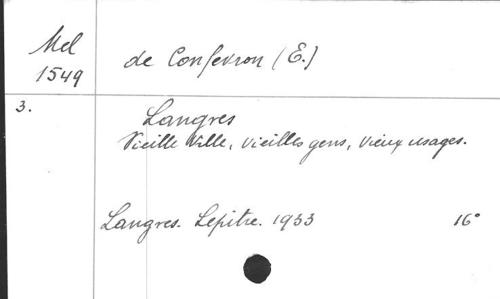 Mel
1549
de Confevron (E.)
3.
Langres
Vieille Ville, vieilles gens, vieux usages.
Langres. Lepitre. 1933
16°